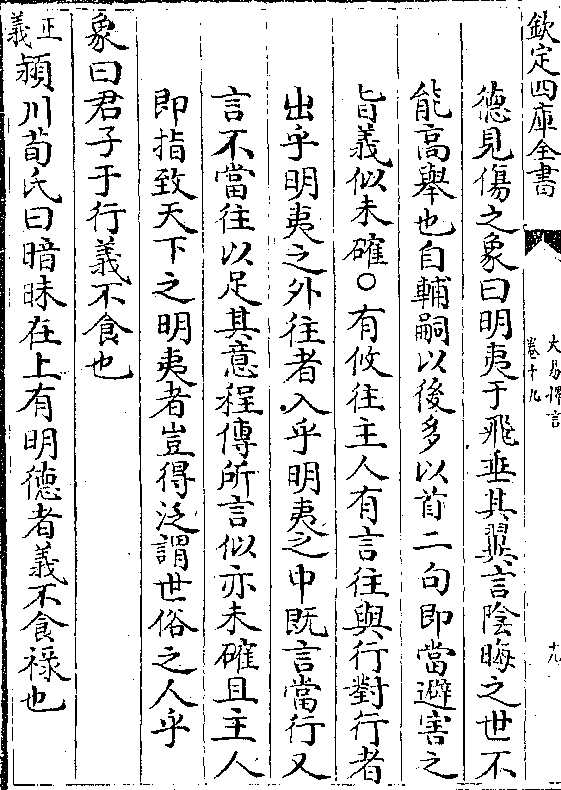 欽定四庫全書
大易擇言
卷十九
十九
德見傷之象曰明夷于飛垂其翼言陰晦之世不
能高舉也自輔嗣以後多以首二句即當避害之
旨義似未確○有攸往主人有言往與行對行者
出乎明夷之外往者入乎明夷之中既言當行又
言不當往以足其意程傳所言似亦未確且主人
即指致天下之明夷者豈得泛謂世俗之人乎
象曰君子于行義不食也
正義
潁川荀氏曰暗昧在上有明德者義不食祿也